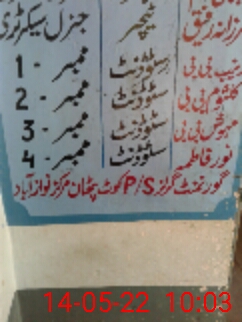 جنرل سیکرٹری ٹیچر مرزانہ رفیق
ممبر - 1 سٹوڈنٹ زینب بی بی
ممبر - 2 سٹوڈنٹ کلثوم بی بی
ممبر - 3 سٹوڈنٹ مہوش بی بی
ممبر - 4 سٹوڈنٹ نور فاطمہ
گورنمنٹ گرلز P/S کوٹ پٹھان مرکز نواز آباد
14-05-22 10:03